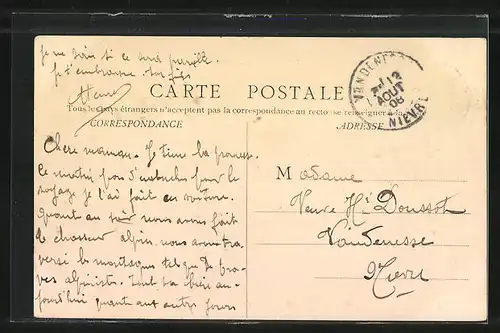 je ne sais si ce sera
Je t'embrasse
CARTE POSTALE
Tous les pays étrangers n'acceptent pas la correspondance au recto se renseigner à la
CORRESPONDANCE
ADRESSE
VANDENESSE
12
AOUT
08
NIEVRE
Chère maman. Je tiens la promesse.
Ce matin pour le
voyage je l'ai fait en voiture.
Quant au nous avons fait
le chasseur alpin, nous avons tra
versé les montagnes tel que de bra
ves alpinistes. Tout va bien au
jourd'hui quant aux autres jours
Madame
Veuve Hi Doussot
Vandenesse
Nièvre